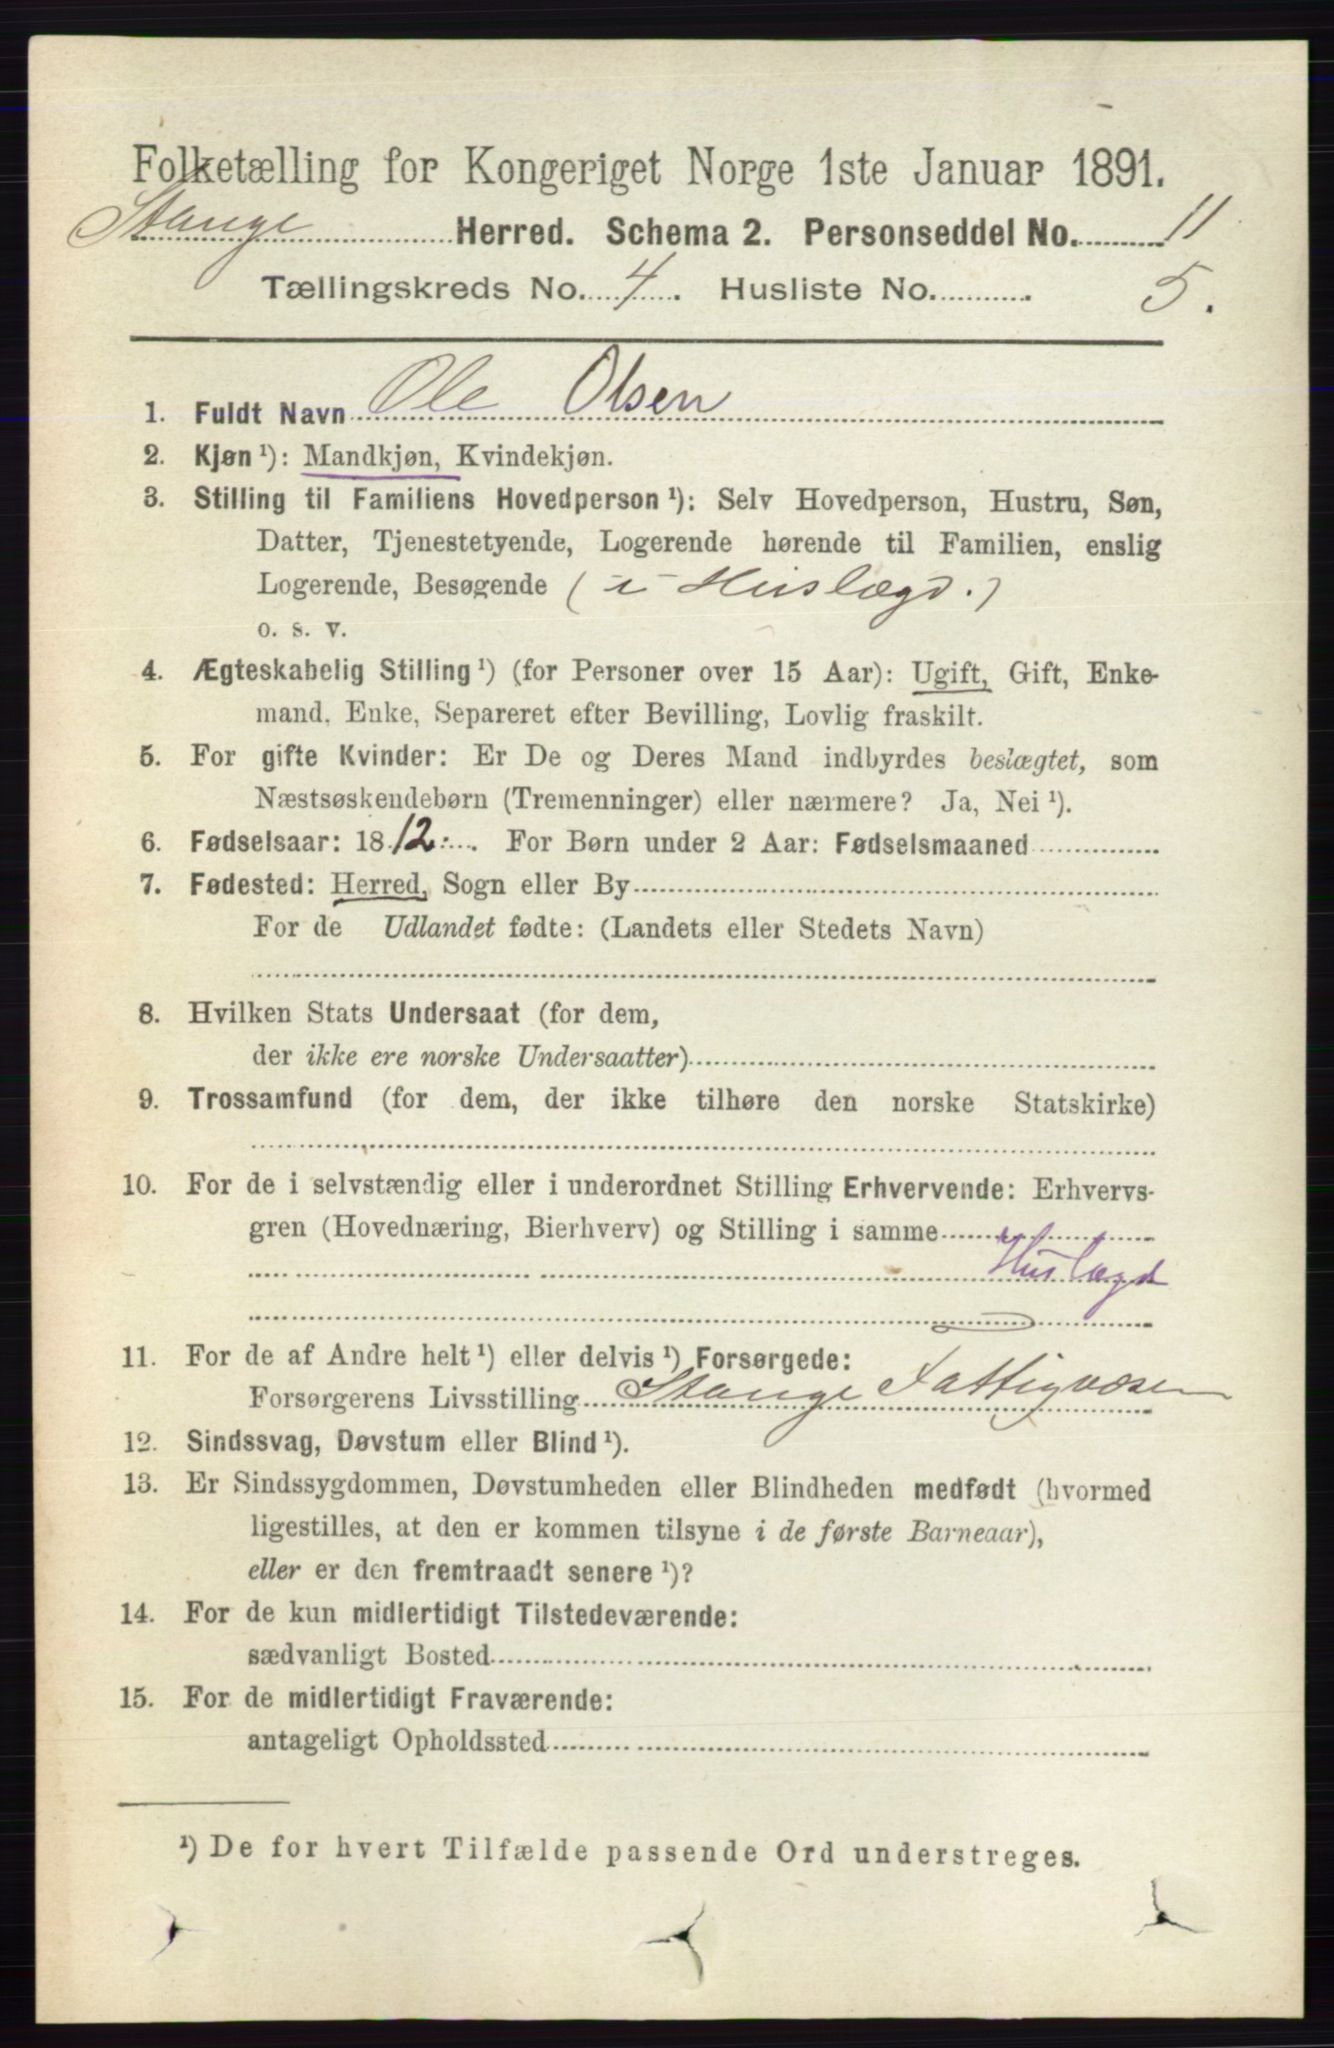 Folketælling for Kongeriget Norge 1ste Januar 1891.
Stange Herred. Schema 2. Personseddel No. 11
Tællingskreds No. 4. Husliste No. 5.
1. Fuldt Navn Ole Olsen
2. Kjøn ¹): Mandkjøn, Kvindekjøn.
3. Stilling til Familiens Hovedperson ¹): Selv Hovedperson, Hustru, Søn,
Datter, Tjenestetyende, Logerende hørende til Familien, enslig
Logerende, Besøgende (i Huslægd.)
o. s. v.
4. Ægteskabelig Stilling ¹) (for Personer over 15 Aar): Ugift, Gift, Enke-
mand, Enke, Separeret efter Bevilling, Lovlig fraskilt.
5. For gifte Kvinder: Er De og Deres Mand indbyrdes beslægtet, som
Næstsøskendebørn (Tremenninger) eller nærmere? Ja, Nei ¹).
6. Fødselsaar: 1812. For Børn under 2 Aar: Fødselsmaaned
7. Fødested: Herred, Sogn eller By
For de Udlandet fødte: (Landets eller Stedets Navn)
8. Hvilken Stats Undersaat (for dem,
der ikke ere norske Undersaatter)
9. Trossamfund (for dem, der ikke tilhøre den norske Statskirke)
10. For de i selvstændig eller i underordnet Stilling Erhvervende: Erhvervs-
gren (Hovednæring, Bierhverv) og Stilling i samme
Huslægd
11. For de af Andre helt ¹) eller delvis ¹) Forsørgede:
Forsørgerens Livsstilling Stange Fattigvæsen
12. Sindssvag, Døvstum eller Blind ¹).
13. Er Sindssygdommen, Døvstumheden eller Blindheden medfødt (hvormed
ligestilles, at den er kommen tilsyne i de første Barneaar),
eller er den fremtraadt senere ¹)?
14. For de kun midlertidigt Tilstedeværende:
sædvanligt Bosted
15. For de midlertidigt Fraværende:
antageligt Opholdssted
¹) De for hvert Tilfælde passende Ord understreges.